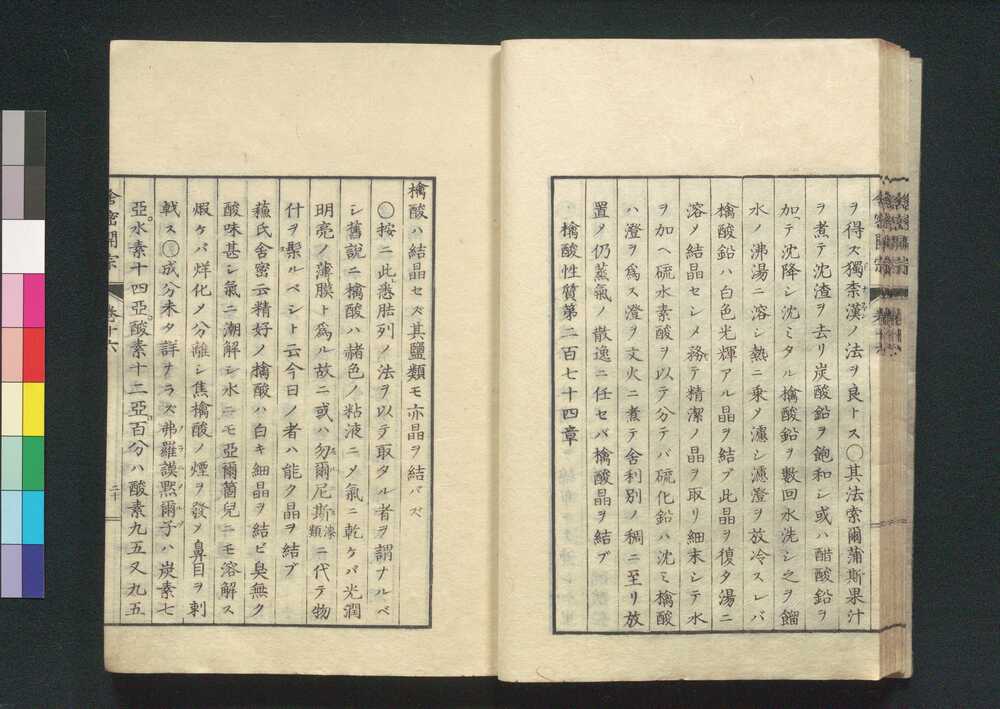 ヲ得ズ獨柰漢ノ法ヲ良トス〇其法索爾蒲斯果汁
ヲ煮テ沈渣ヲ去リ炭酸鉛ヲ飽和シ或ハ醋酸鉛ヲ
加ヘテ沈降シ沈ミタル檎酸鉛ヲ數回水洗シ之ヲ餾
水ノ沸湯ニ溶シ熱ニ乗ノ濾シ濾澄ヲ放冷スレバ
檎酸鉛ハ白色光輝アル晶ヲ結ブ此晶ヲ復タ湯ニ
溶ノ結晶セシメ務テ精潔ノ晶ヲ取リ細末シテ水
ヲ加ヘ硫水素酸ヲ以テ分テバ硫化鉛ハ沈ミ檎酸
ハ澄ヲ爲ス澄ヲ文火ニ煮テ舎利別ノ稠ニ至リ放
置ノ仍蒸氣ノ散逸ニ任セバ檎酸晶ヲ結ブ
檎酸性質第二百七十四章
檎酸ハ結晶セズ其鹽類モ亦晶ヲ結バズ
按ニ此悉肶列ノ法ヲ以テ取タル者ヲ謂ナルベ
シ舊説ニ檎酸ハ赭色ノ粘液ニノ氣ニ乾ケバ光潤
明亮ノ薄膜ト爲ル故ニ或ハ勿爾尼斯漆類ニ代テ物
什ヲ髹ルベシト云今日ノ者ハ能ク晶ヲ結ブ
蘓氏舎密云精好ノ檎酸ハ白キ細晶ヲ結ビ臭無ク
酸味甚シ氣ニ潮解シ水ニモ亞爾箇兒ニモ溶解ス
煆ケバ烊化ノ分離シ焦檎酸ノ煙ヲ發ノ鼻目ヲ刺
戟ス成分未タ詳ナラズ弗羅謨㸃爾子ハ炭素七
亞水素十四亞酸素十二亞百分ハ酸素九五又九五
舎密開宗 卷十六 二十